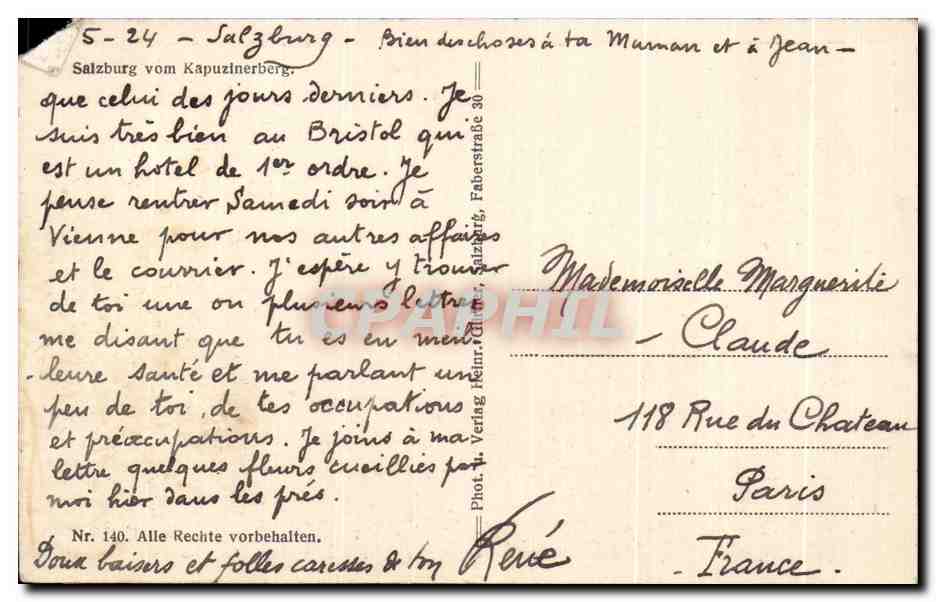 5-24 - Salzburg - Bien des choses à ta Maman et à Jean -
Salzburg vom Kapuzinerberg.
que celui des jours derniers. Je
suis très bien au Bristol qui
est un hotel de 1er ordre. Je
pense rentrer Samedi soir à
Vienne pour nos autres affaires
et le courrier. J'espère y trouver
de toi une ou plusieurs lettres
me disant que tu es en meil-
leure santé et me parlant un
peu de toi, de tes occupations
et préoccupations. Je joins à ma
lettre quelques fleurs cueillies par
moi hier dans les prés.
Nr. 140. Alle Rechte vorbehalten.
Doux baisers et folles caresses de ton René
Phot. u. Verlag Heinr. Gürtler, Salzburg, Faberstraße 30
CPAPHIL
Mademoiselle Marguerite
- Claude
118 Rue du Chateau
Paris
- France -